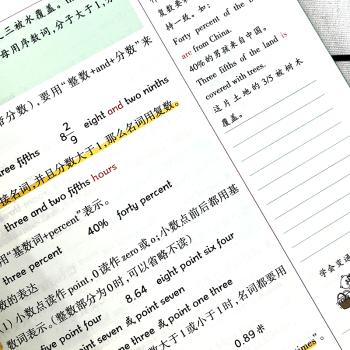 三被水覆盖。
母用序数词,分子大于1,分
分数),要用“整数+and+分数”来
three fifths
8 2/9 eight and two ninths
接名词,并且分数大于1,那么名词用复数。
three and two fifths hours
用“基数词+percent”表示。
three percent
40% forty percent
数的表达
(1)小数点读作point,0读作zero或o;小数点前后都用基
数词表示。(整数部分为0时,可以省略不读)
five point four
8.64 eight point six four
point seven 或 point seven
point three 或 point one three
数大于1或小于1时,名词都要用
0.89米
复数要
持一致。如:
Forty percent of the
are from China.
40%的男孩来自中国。
Three fifths of the land is
covered with trees.
这片土地的3/5被树木
覆盖。
学会变通